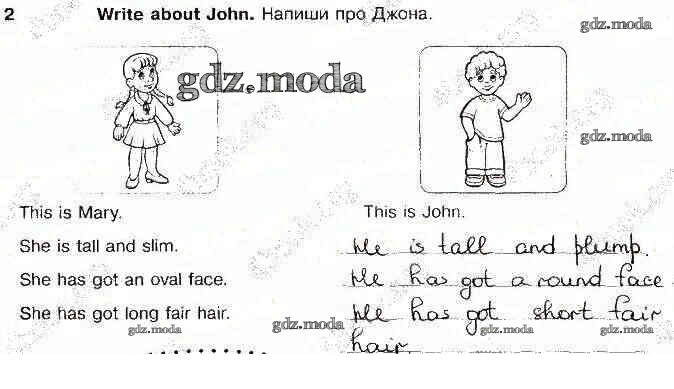 2 Write about John. Напиши про Джона.
gdz.moda
gdz.moda
gdz.moda
This is Mary.
This is John.
She is tall and slim.
He is tall and plump.
She has got an oval face.
He has got a round face
She has got long fair hair.
He has got short fair
gdz.moda
gdz.moda
gdz.moda
gdz.moda
hair.